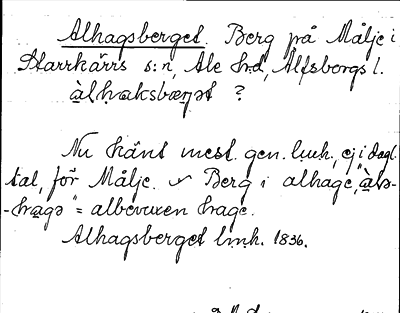 Alhagsberget. Berg på Målje i
Starrkärrs s:n, Ale hd, Älfsborgs l.
àlhaksbærjət ?
Nu känt mest gen. lmh, ej i dagl.
tal, för Målje. Berg i alhage, "àlə-
-hagə" = albevuxen hage.
Alhagsberget lmh. 1836.